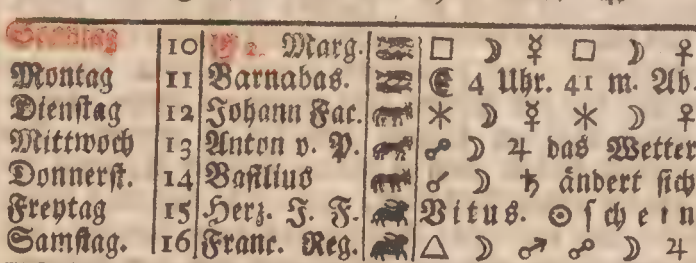 Sonntag 10 E 2. Marg. □ ☽ ☿ □ ☽ ♀
Montag 11 Barnabas. ☾ 4 Uhr. 41 m. Ab.
Dienſtag 12 Johann Fac. ⚹ ☽ ☿ ⚹ ☽ ♀
Mittwoch 13 Anton v. P. ☍ ☽ ♃ das Wetter
Donnerſt. 14 Baſilius ☌ ☽ ♄ ändert ſich
Freytag 15 Herz. J. F. Vitus. ☉ ſchein
Samſtag. 16 Franc. Reg. △ ☽ ♂ ☍ ☽ ♃